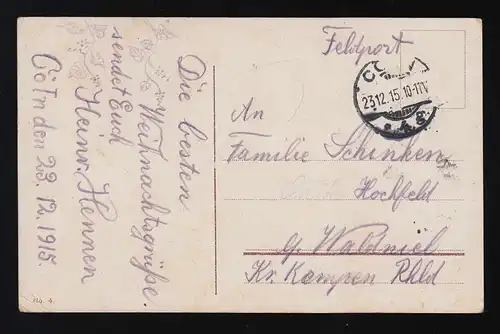 Feldpost
Die besten
Weihnachtsgrüße.
sendet Euch
Heinr. Hennen
Cöln den 23. 12. 1915.
23.12.15.10-11V
An
Familie Schinken
Hochfeld
b/ Waldniel
Kr. Kempen Rhld